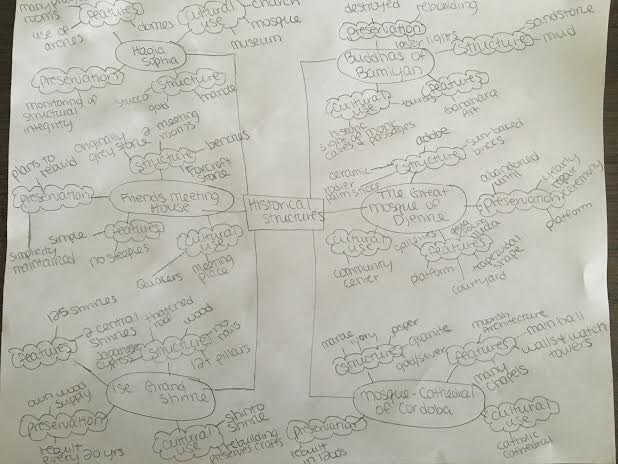 rooms
Features
domes
use of
arches
Hagia
Sophia
Cultural
use
church
mosque
museum
Preservation
monitoring of
structural
integrity
Structure
stucco
gold
marble
destroyed
rebuilding
Preservation
laser lights
Buddhas of
Bamiyan
Structure
sandstone
mud
Features
Gandhara
Art
Cultural
use
tourist
historic
caves & passages
plans to
rebuild
Preservation
simplicity
maintained
originally
grey stone
2
meeting
rooms
Structure
benches
Foxcroft
stone
Friends Meeting
House
simple
Features
no steeples
Cultural
use
Quakers
meeting
place
Historical
structures
adobe
Structure
sun-baked
bricks
ceramic
The Great
mosque of
Djenne
abandoned
until
Preservation
yearly
repair
ceremony
platform
Cultural
use
community
center
galleries
Features
platform
courtyard
trapezoidal
shape
125 shrines
Features
2 central
shrines
thatched
roof
wood
Japanese
cypress
Structure
no
nails
12+ pillars
Ise Grand
Shrine
own wood
supply
Preservation
rebuilt
every 20 yrs
Cultural
use
shinto
shrine
rebuilding
preserves crafts
marble
ivory
jasper
granite
Structure
gold/silver
Features
moorish
Architecture
main hall
walls + watch
towers
many
chapels
mosque-Cathedral
of Cordoba
Preservation
rebuilt
in 1200s
Cultural
use
catholic
cathedral